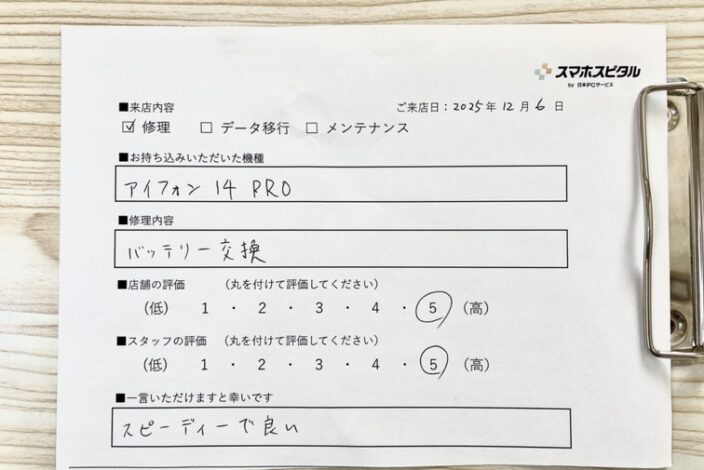 スマホスピタル
by 日本PCサービス
■来店内容
ご来店日：2025年 12月 6日
☑ 修理 □ データ移行 □ メンテナンス
■お持ち込みいただいた機種
アイフォン 14 PRO
■修理内容
バッテリー交換
■店舗の評価 （丸を付けて評価してください）
（低） 1 ・ 2 ・ 3 ・ 4 ・ 5 （高）
■スタッフの評価 （丸を付けて評価してください）
（低） 1 ・ 2 ・ 3 ・ 4 ・ 5 （高）
■一言いただけますと幸いです
スピーディーで良い